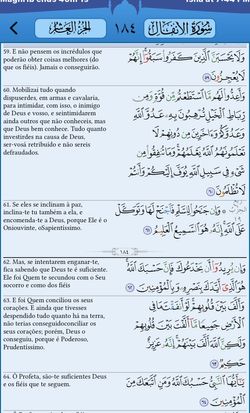 سورة الأنفال
١٨٤
الجزء العاشر
59. E não pensem os incrédulos que
poderão obter coisas melhores (do
que os fiéis). Jamais o conseguirão.
وَلَا يَحْسَبَنَّ الَّذِينَ كَفَرُوا سَبَقُوا إِنَّهُمْ
لَا يُعْجِزُونَ ٥٩
60. Mobilizai tudo quando
dispuserdes, em armas e cavalaria,
para intimidar, com isso, o inimigo
de Deus e vosso, e seintimidarem
ainda outros que não conheceis, mas
que Deus bem conhece. Tudo quanto
investirdes na causa de Deus,
ser-vosá retribuído e não sereis
defraudados.
وَأَعِدُّوا لَهُم مَّا اسْتَطَعْتُم مِّن قُوَّةٍ وَمِن
رِّبَاطِ الْخَيْلِ تُرْهِبُونَ بِهِ عَدُوَّ اللَّهِ
وَعَدُوَّكُمْ وَآخَرِينَ مِن دُونِهِمْ لَا
تَعْلَمُونَهُمُ اللَّهُ يَعْلَمُهُمْ وَمَا تُنفِقُوا مِن
شَيْءٍ فِي سَبِيلِ اللَّهِ يُوَفَّ إِلَيْكُمْ وَأَنتُمْ
لَا تُظْلَمُونَ ٦٠
61. Se eles se inclinam à paz,
inclina-te tu também a ela, e
encomenda-te a Deus, porque Ele é o
Oniouvinte, oSapientíssimo.
وَإِن جَنَحُوا لِلسَّلْمِ فَاجْنَحْ لَهَا وَتَوَكَّلْ
عَلَى اللَّهِ إِنَّهُ هُوَ السَّمِيعُ الْعَلِيمُ ٦١
١٨٤
62. Mas, se intentarem enganar-te,
fica sabendo que Deus te é suficiente.
Ele foi Quem te secundou com o Seu
socorro e como dos fiéis
وَإِن يُرِيدُوا أَن يَخْدَعُوكَ فَإِنَّ حَسْبَكَ اللَّهُ
هُوَ الَّذِي أَيَّدَكَ بِنَصْرِهِ وَبِالْمُؤْمِنِينَ ٦٢
63. E foi Quem conciliou os seus
corações. E ainda que tivesses
despendido tudo quanto há na terra,
não terias conseguidoconciliar os
seus corações; porém, Deus o
conseguiu, porque é Poderoso,
Prudentíssimo.
وَأَلَّفَ بَيْنَ قُلُوبِهِمْ لَوْ أَنفَقْتَ مَا فِي
الْأَرْضِ جَمِيعًا مَّا أَلَّفْتَ بَيْنَ قُلُوبِهِمْ
وَلَٰكِنَّ اللَّهَ أَلَّفَ بَيْنَهُمْ إِنَّهُ عَزِيزٌ
حَكِيمٌ ٦٣
64. Ó Profeta, são-te suficientes Deus
e os fiéis que te seguem.
يَا أَيُّهَا النَّبِيُّ حَسْبُكَ اللَّهُ وَمَنِ اتَّبَعَكَ مِنَ
الْمُؤْمِنِينَ ٦٤